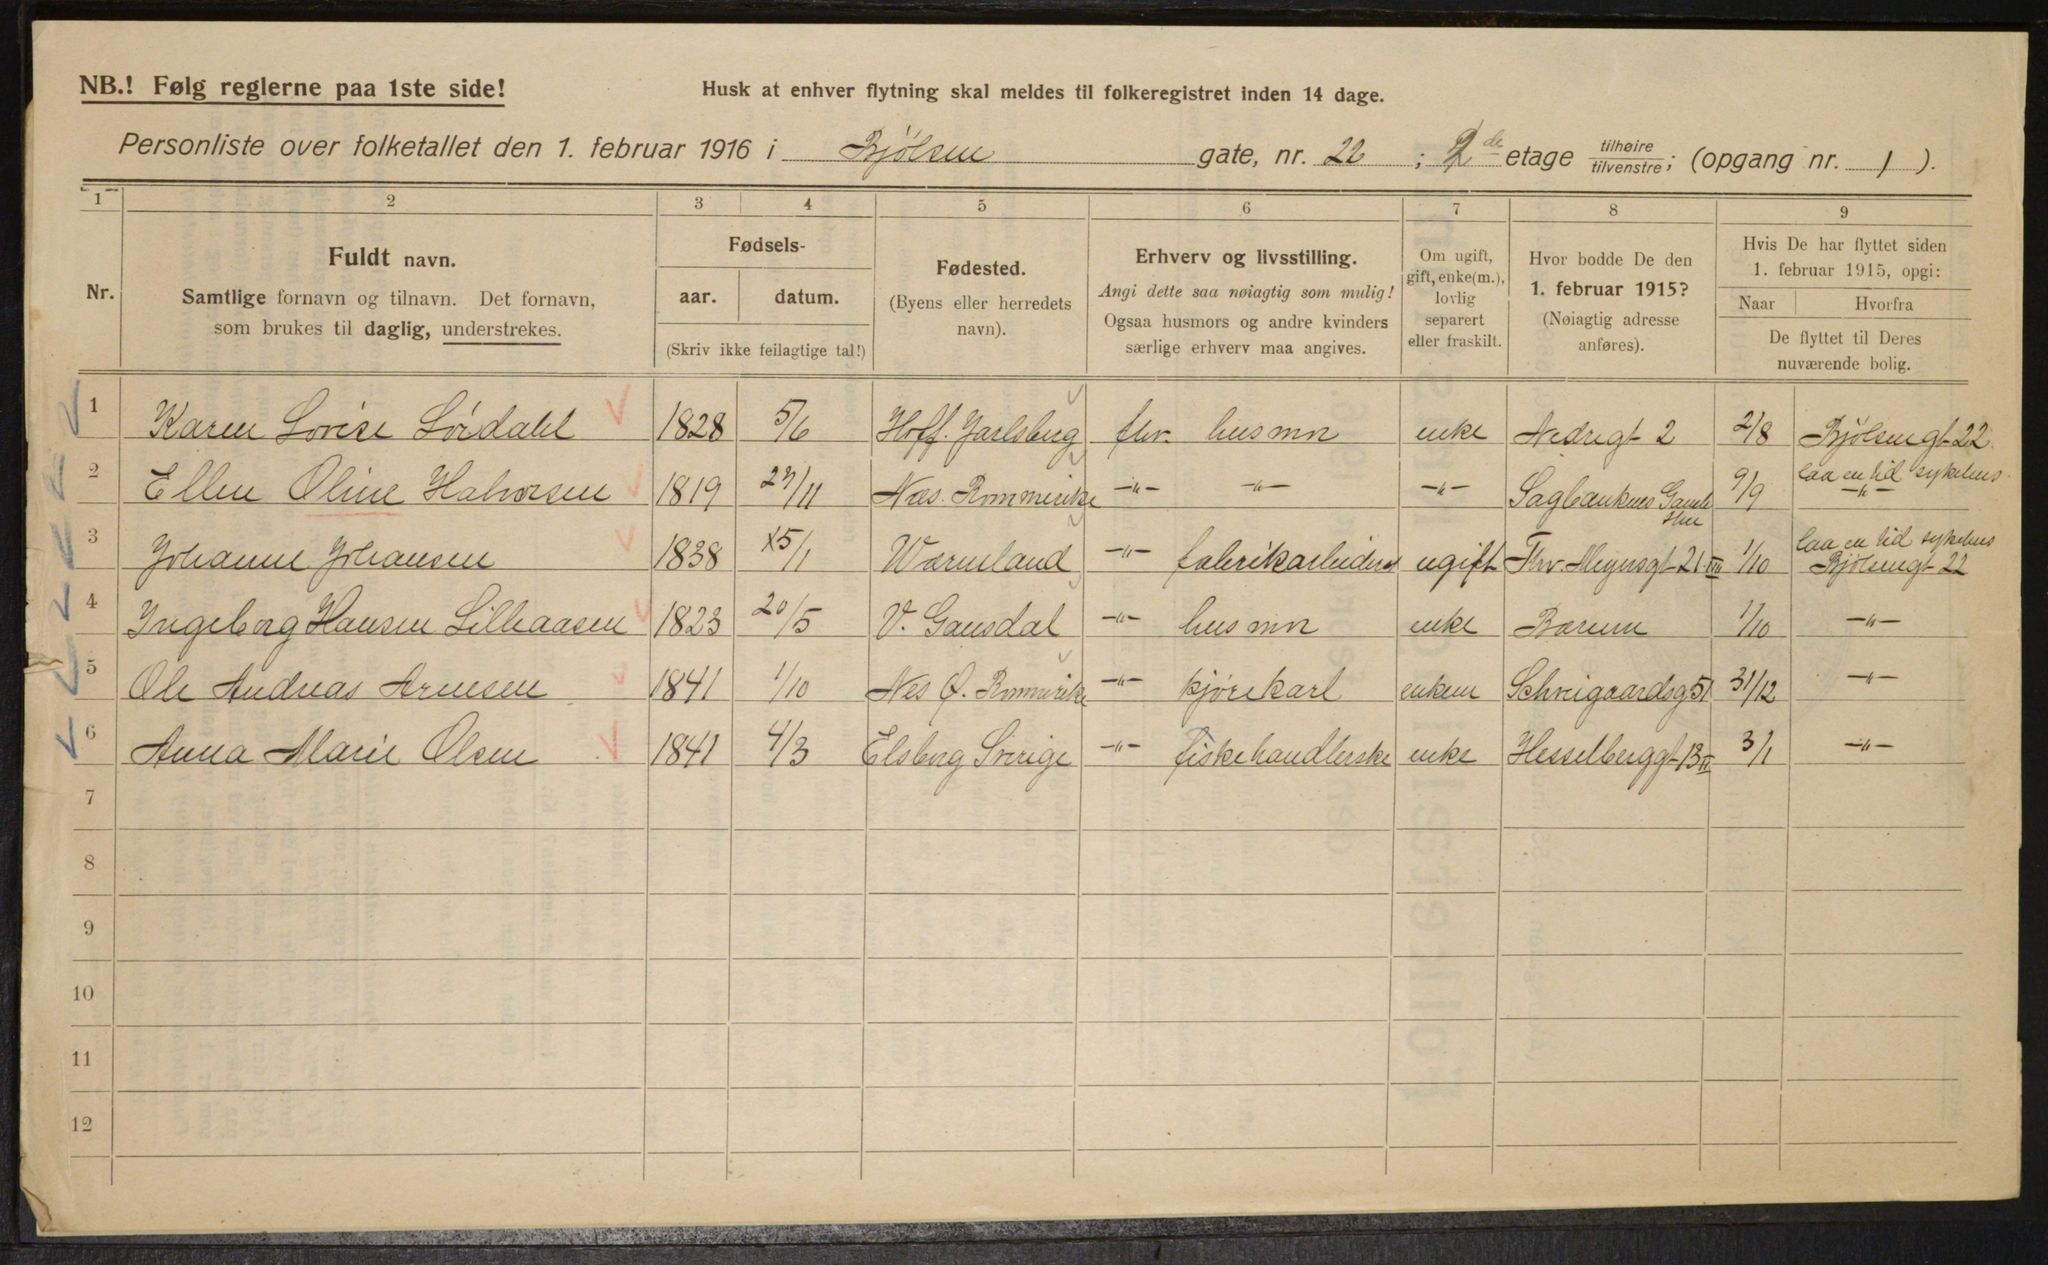 NB.! Følg reglerne paa 1ste side!
Husk at enhver flytning skal meldes til folkeregistret inden 14 dage.
Personliste over folketallet den 1. februar 1916 i Bjølsen gate, nr. 22 ; 2de etage tilhøire tilvenstre; (opgang nr. 1 ).
1 2 3 4 5 6 7 8 9
Nr.
Fuldt navn.
Samtlige fornavn og tilnavn. Det fornavn,
som brukes til daglig, understrekes.
Fødsels-
aar. datum.
(Skriv ikke feilagtige tal!)
Fødested.
(Byens eller herredets
navn).
Erhverv og livsstilling.
Angi dette saa nøiagtig som mulig!
Ogsaa husmors og andre kvinders
særlige erhverv maa angives.
Om ugift,
gift, enke(m.),
lovlig
separert
eller fraskilt.
Hvor bodde De den
1. februar 1915?
(Nøiagtig adresse
anføres).
Hvis De har flyttet siden
1. februar 1915, opgi:
Naar Hvorfra
De flyttet til Deres
nuværende bolig.
1 Karen Lovise Sørdahl 1828 5/6 Hoff. Jarlsberg fhv. husmor enke Nedregt 2 2/8 Bjølsengt 22.
2 Ellen Oline Halvorsen 1819 27/11 Næs. Rommerike -"- -"- -"- Sagbankens Gamle 9/9 laa en tid sykehus. -"-
3 Johanne Johansen 1838 15/1 Wærmland -"- fabrikarbeiders ugift Thv. Meyersgt 21 III 1/10 laa en tid sykehus Bjølsengt 22
4 Ingeborg Hansen Lilleaasen 1823 20/5 V. Gausdal -"- husmor enke Bærum 1/10 -"-
5 Ole Andreas Arnesen 1841 1/10 Nes Ø. Rommerike -"- kjørekarl enkem Schweigaardsg 51 31/12 -"-
6 Anna Marie Olsen 1841 4/3 Elsborg Sverige -"- fiskehandlerske enke Hesselberggt 13 II 3/1 -"-
7
8
9
10
11
12